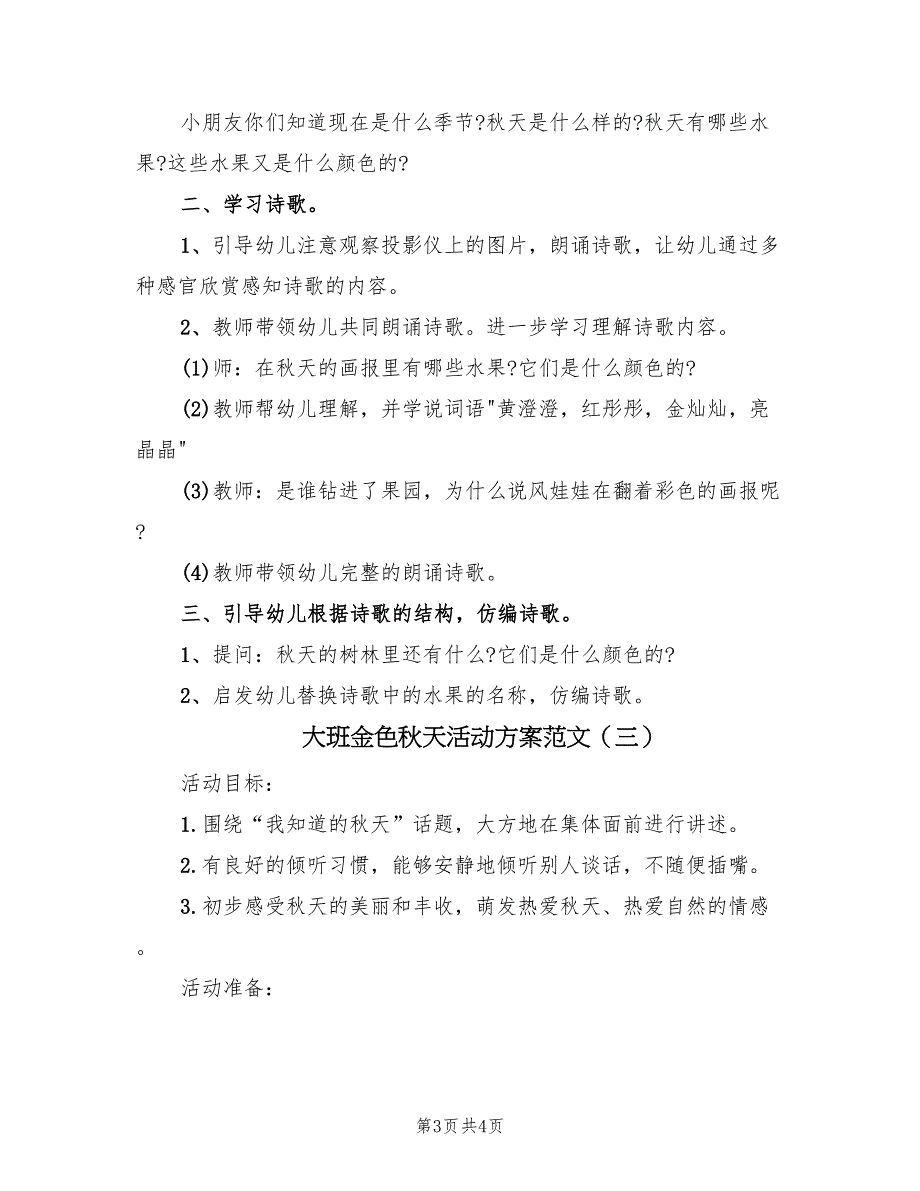 小朋友你们知道现在是什么季节?秋天是什么样的?秋天有哪些水
果?这些水果又是什么颜色的?
二、学习诗歌。
1、引导幼儿注意观察投影仪上的图片，朗诵诗歌，让幼儿通过多
种感官欣赏感知诗歌的内容。
2、教师带领幼儿共同朗诵诗歌。进一步学习理解诗歌内容。
(1)师：在秋天的画报里有哪些水果?它们是什么颜色的?
(2)教师帮幼儿理解，并学说词语"黄澄澄，红彤彤，金灿灿，亮
晶晶"
(3)教师：是谁钻进了果园，为什么说风娃娃在翻着彩色的画报呢
?
(4)教师带领幼儿完整的朗诵诗歌。
三、引导幼儿根据诗歌的结构，仿编诗歌。
1、提问：秋天的树林里还有什么?它们是什么颜色的?
2、启发幼儿替换诗歌中的水果的名称，仿编诗歌。
大班金色秋天活动方案范文（三）
活动目标：
1.围绕“我知道的秋天”话题，大方地在集体面前进行讲述。
2.有良好的倾听习惯，能够安静地倾听别人谈话，不随便插嘴。
3.初步感受秋天的美丽和丰收，萌发热爱秋天、热爱自然的情感
。
活动准备：
第3页共4页